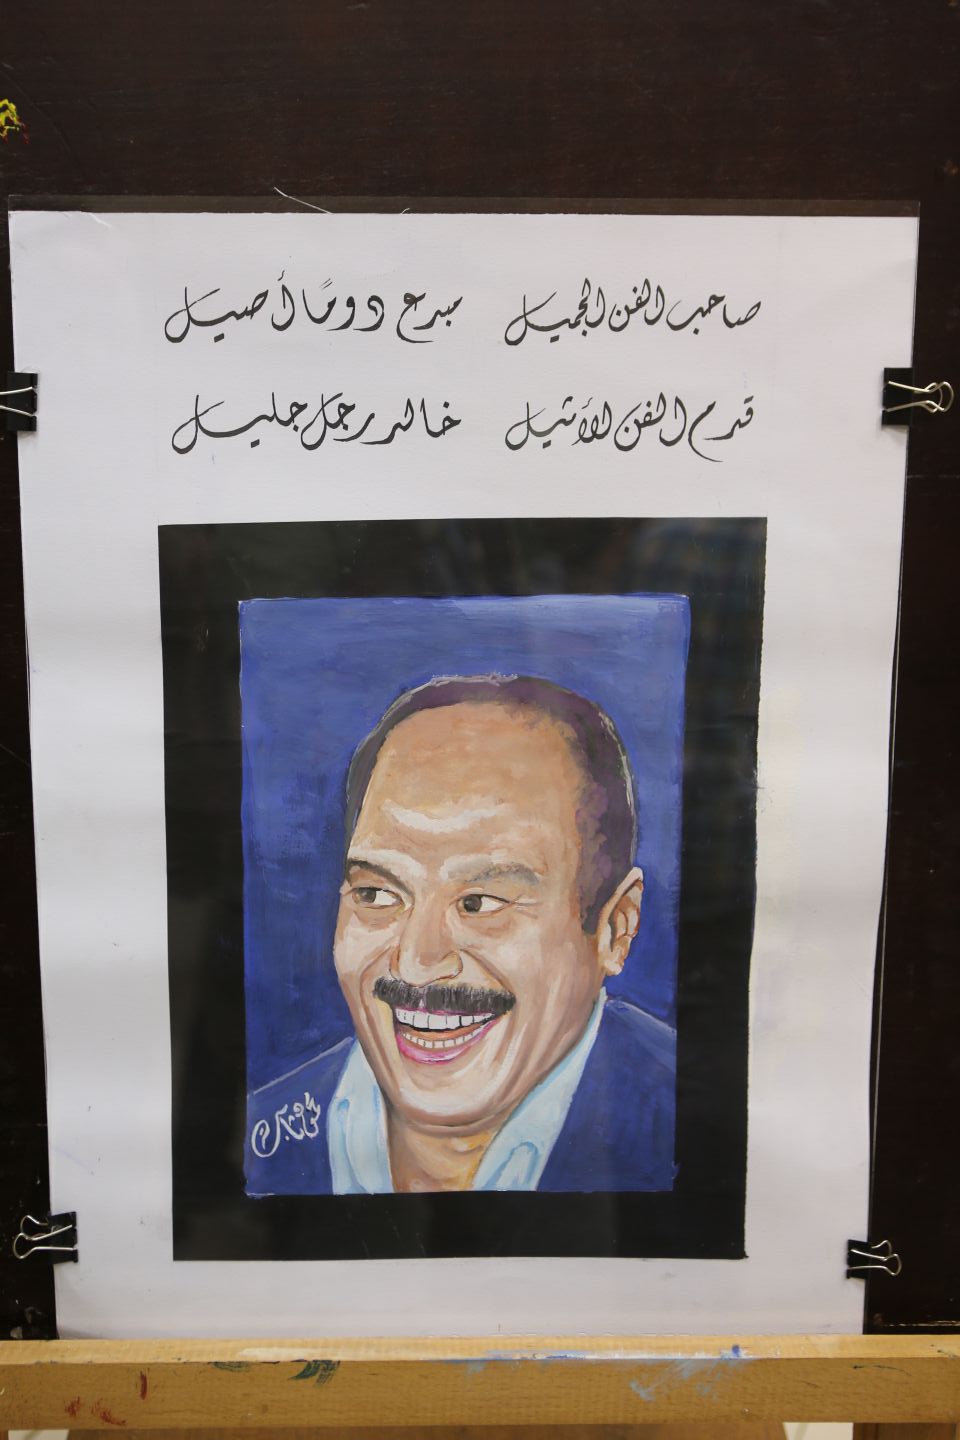 صاحب الفن الجميل مبدع دومًا أصيل
قدم الفن الأثيل خالد رجل جليل